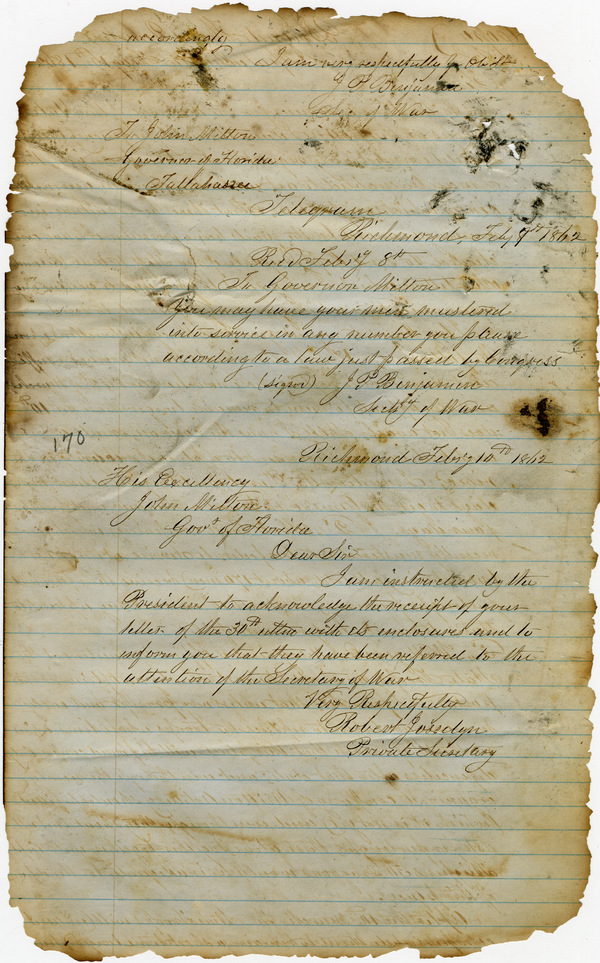 accordingly
I am very respectfully yr Obdt
J P Benjamin
Secy of War
To John Milton
Governor of Florida
Tallahassee
Telegram
Richmond, Feby 7th 1862
Recd Feby 8th
To Governor Milton
You may have your men mustered
into service in any number you please
according to a law just passed by Congress
(signed) J P Benjamin
Secty of War
170
Richmond Feby 10th 1862
His Excellency
John Milton
Govr of Florida
Dear Sir
I am instructed by the
President to acknowledge the receipt of your
letter of the 30th ultra with its enclosures and to
inform you that they have been referred to the
attention of the Secretary of War
Very Respectfully
Robert Josselyn
Private Secretary